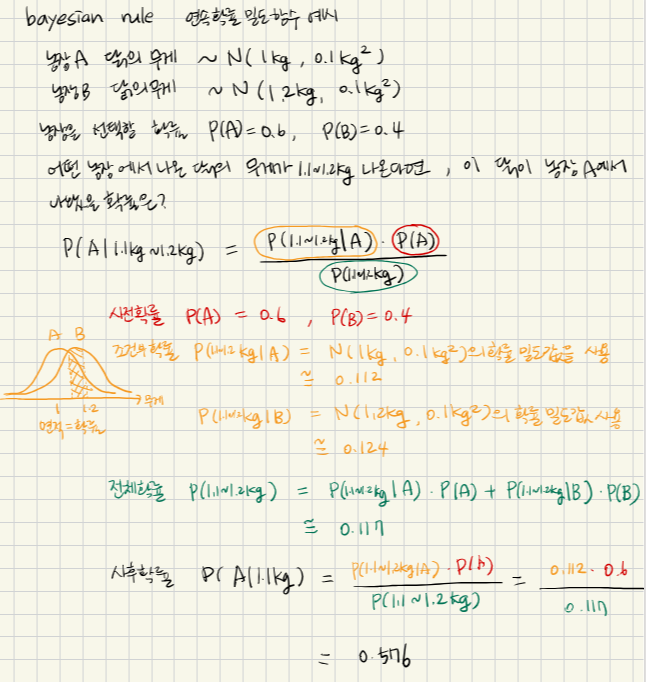 bayesian rule 연속확률 밀도함수 예시
농장A 닭의 무게 ~ N(1kg, 0.1kg²)
농장B 닭의무게 ~ N(1.2kg, 0.1kg²)
농장을 선택할 확률 P(A)=0.6, P(B)=0.4
어떤 농장에서 나온 닭의 무게가 1.1~1.2kg 나온다면, 이 닭이 농장A에서
나왔을 확률은?
P(A|1.1kg~1.2kg) = P(1.1~1.2kg|A) · P(A)
P(1.1~1.2kg)
사전확률 P(A) = 0.6, P(B)=0.4
A B
조건부확률 P(1.1~1.2kg|A) = N(1kg, 0.1kg²)의 확률 밀도값을 사용
≅ 0.112
1 1.2 → 무게
면적=확률
P(1.1~1.2kg|B) = N(1.2kg, 0.1kg²)의 확률 밀도값 사용
≅ 0.124
전체확률 P(1.1~1.2kg) = P(1.1~1.2kg|A) · P(A) + P(1.1~1.2kg|B) · P(B)
≅ 0.117
사후확률 P(A|1.1kg) = P(1.1~1.2kg|A) · P(A) = 0.112 · 0.6
P(1.1~1.2kg) 0.117
= 0.576